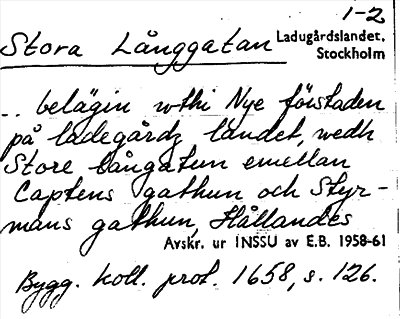 1-2
Stora Långgatan Ladugårdslandet,
Stockholm
.. belägin wthi Nye förstaden
på ladegårdz landet, wedh
Store långatun emellan
Captens gathun och Styr-
mans gathun, Hållandes
Avskr. ur INSSU av E.B. 1958-61
Bygg. koll. prot. 1658, s. 126.